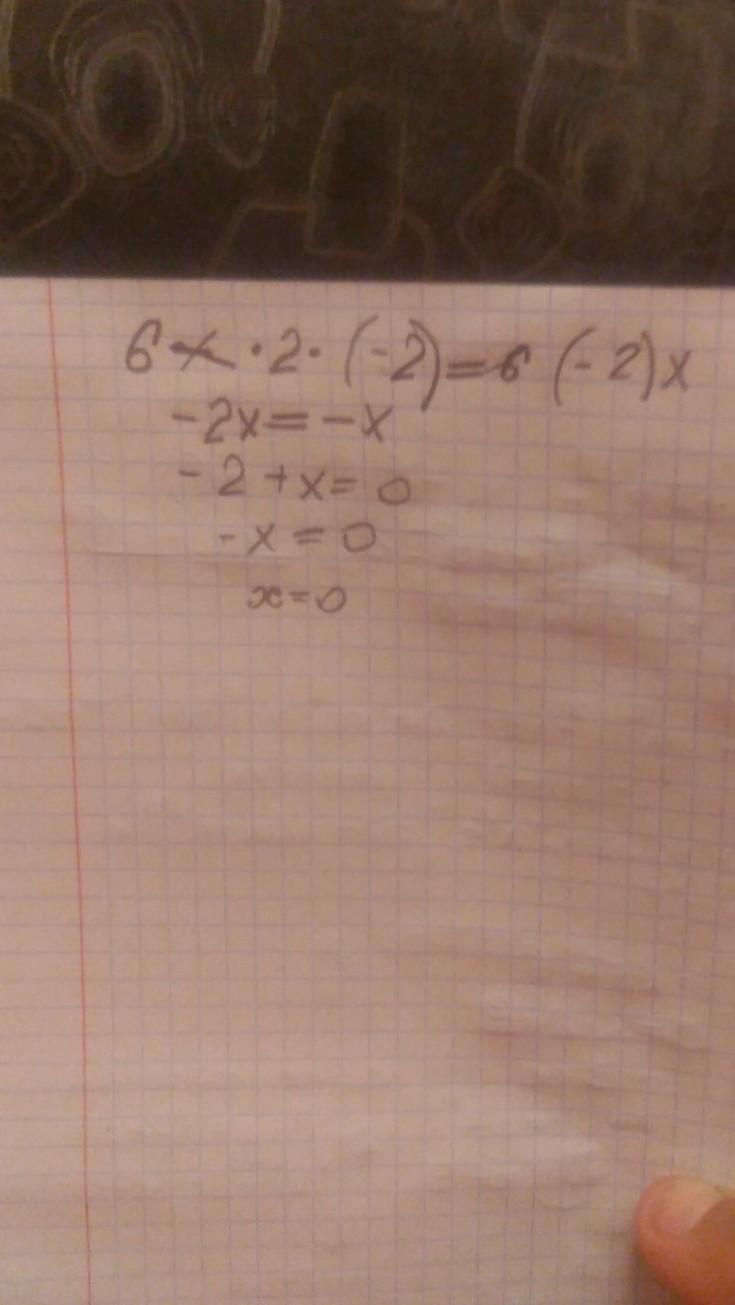 6x·2·(-2)=6(-2)x
-2x=-x
-2+x=0
-x=0
x=0